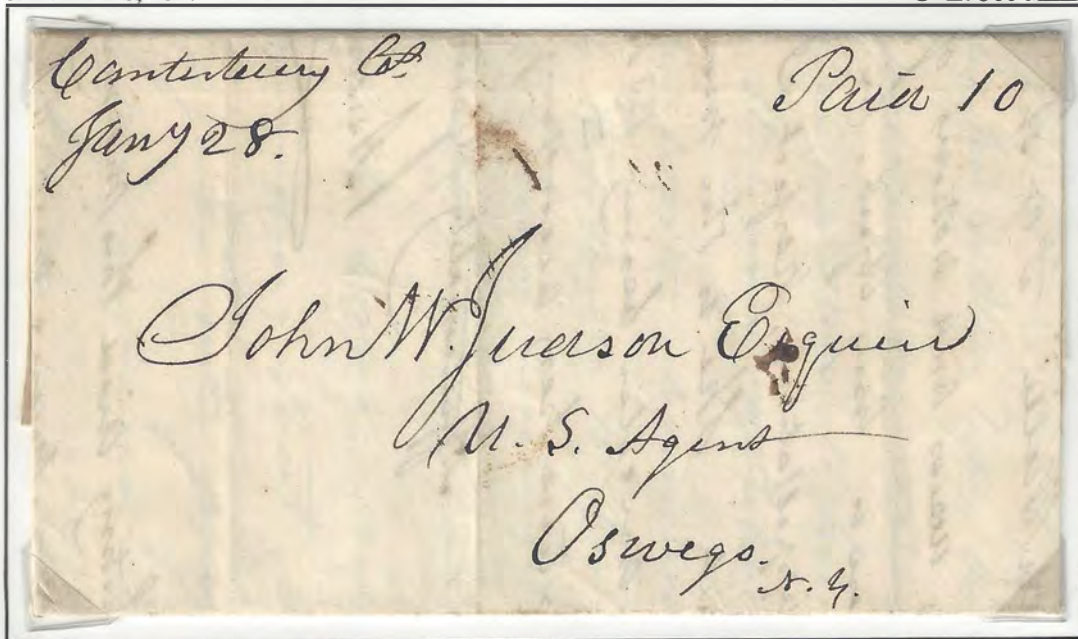 Canterbury Ct
Jany 28.
Paid 10
John W. Judson Esquire
U. S. Agent
Oswego.
N. Y.